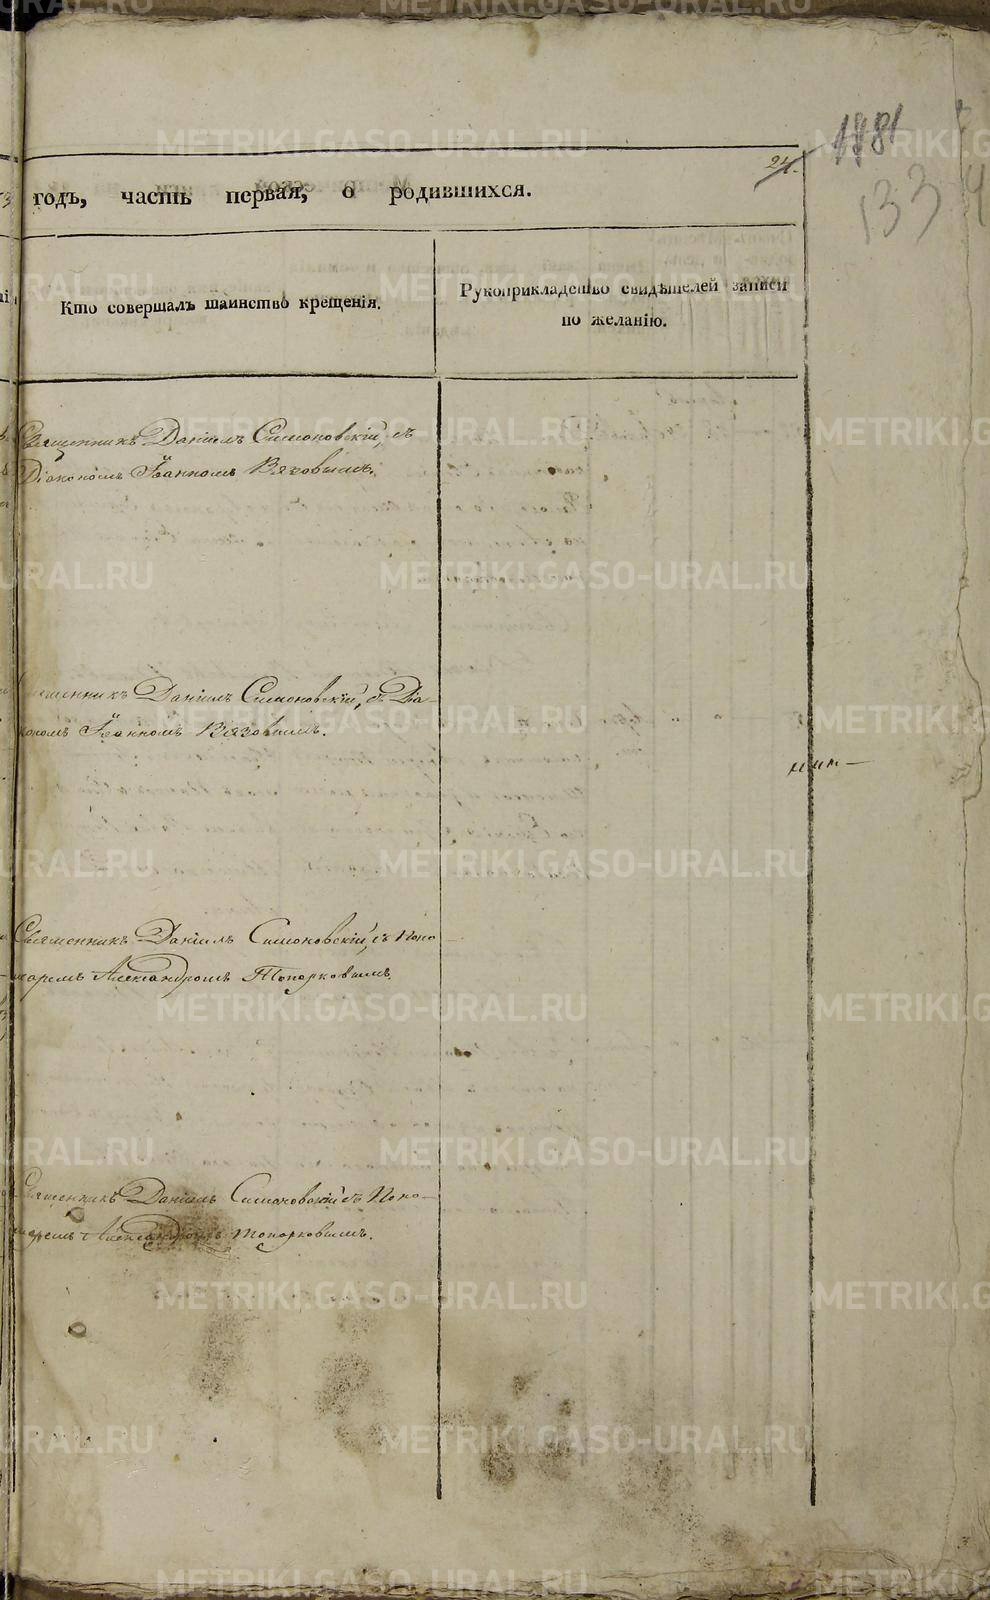 1881
24.
334
годъ, часть первая, о родившихся.
Кто совершалъ таинство крещенія.
Рукоприкладство свидѣтелей записи
по желанію.
Священникъ Даніилъ Симоновскій, съ
Діакономъ Іоанномъ Вязовымъ.
Священникъ Даніилъ Симоновскій, съ Діа-
кономъ Іоанномъ Вязовымъ.
Священникъ Даніилъ Симоновскій, съ Поно-
маремъ Александромъ Топорковымъ.
Священникъ Даніилъ Симоновскій съ Поно-
маремъ Александромъ Топорковымъ.
METRIKI.GASO-URAL.RU